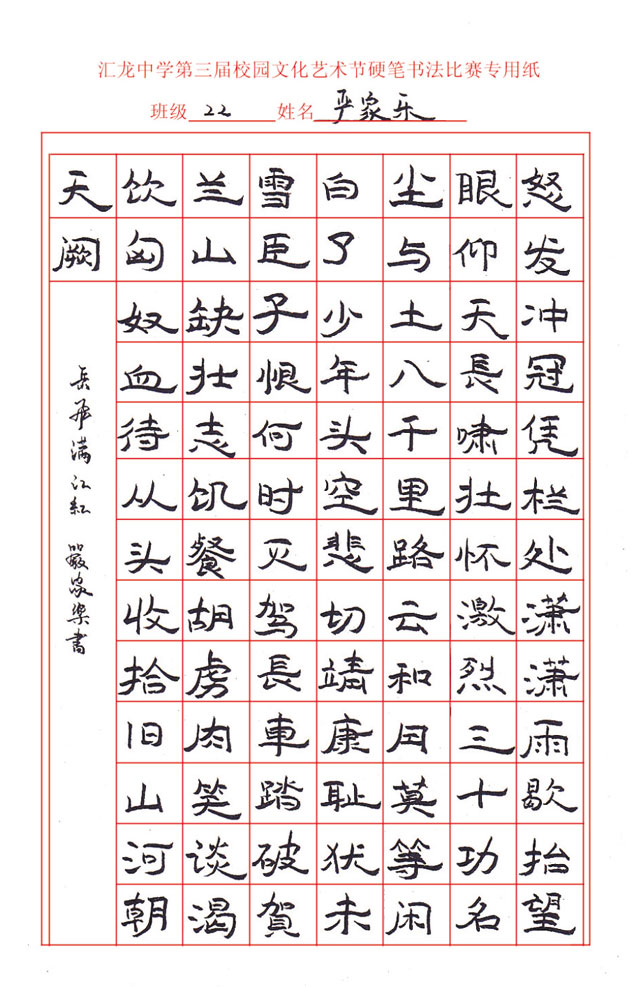 汇龙中学第三届校园文化艺术节硬笔书法比赛专用纸
班级 22 姓名 严家乐
怒发冲冠凭栏处潇潇雨歇抬望
眼仰天長啸壮怀激烈三十功名
尘与土八千里路云和月莫等闲
白了少年头空悲切靖康耻犹未
雪臣子恨何时灭驾長車踏破賀
兰山缺壮志饥餐胡虏肉笑谈渴
饮匈奴血待从头收拾旧山河朝
天阙
岳飛满江紅 嚴家樂書